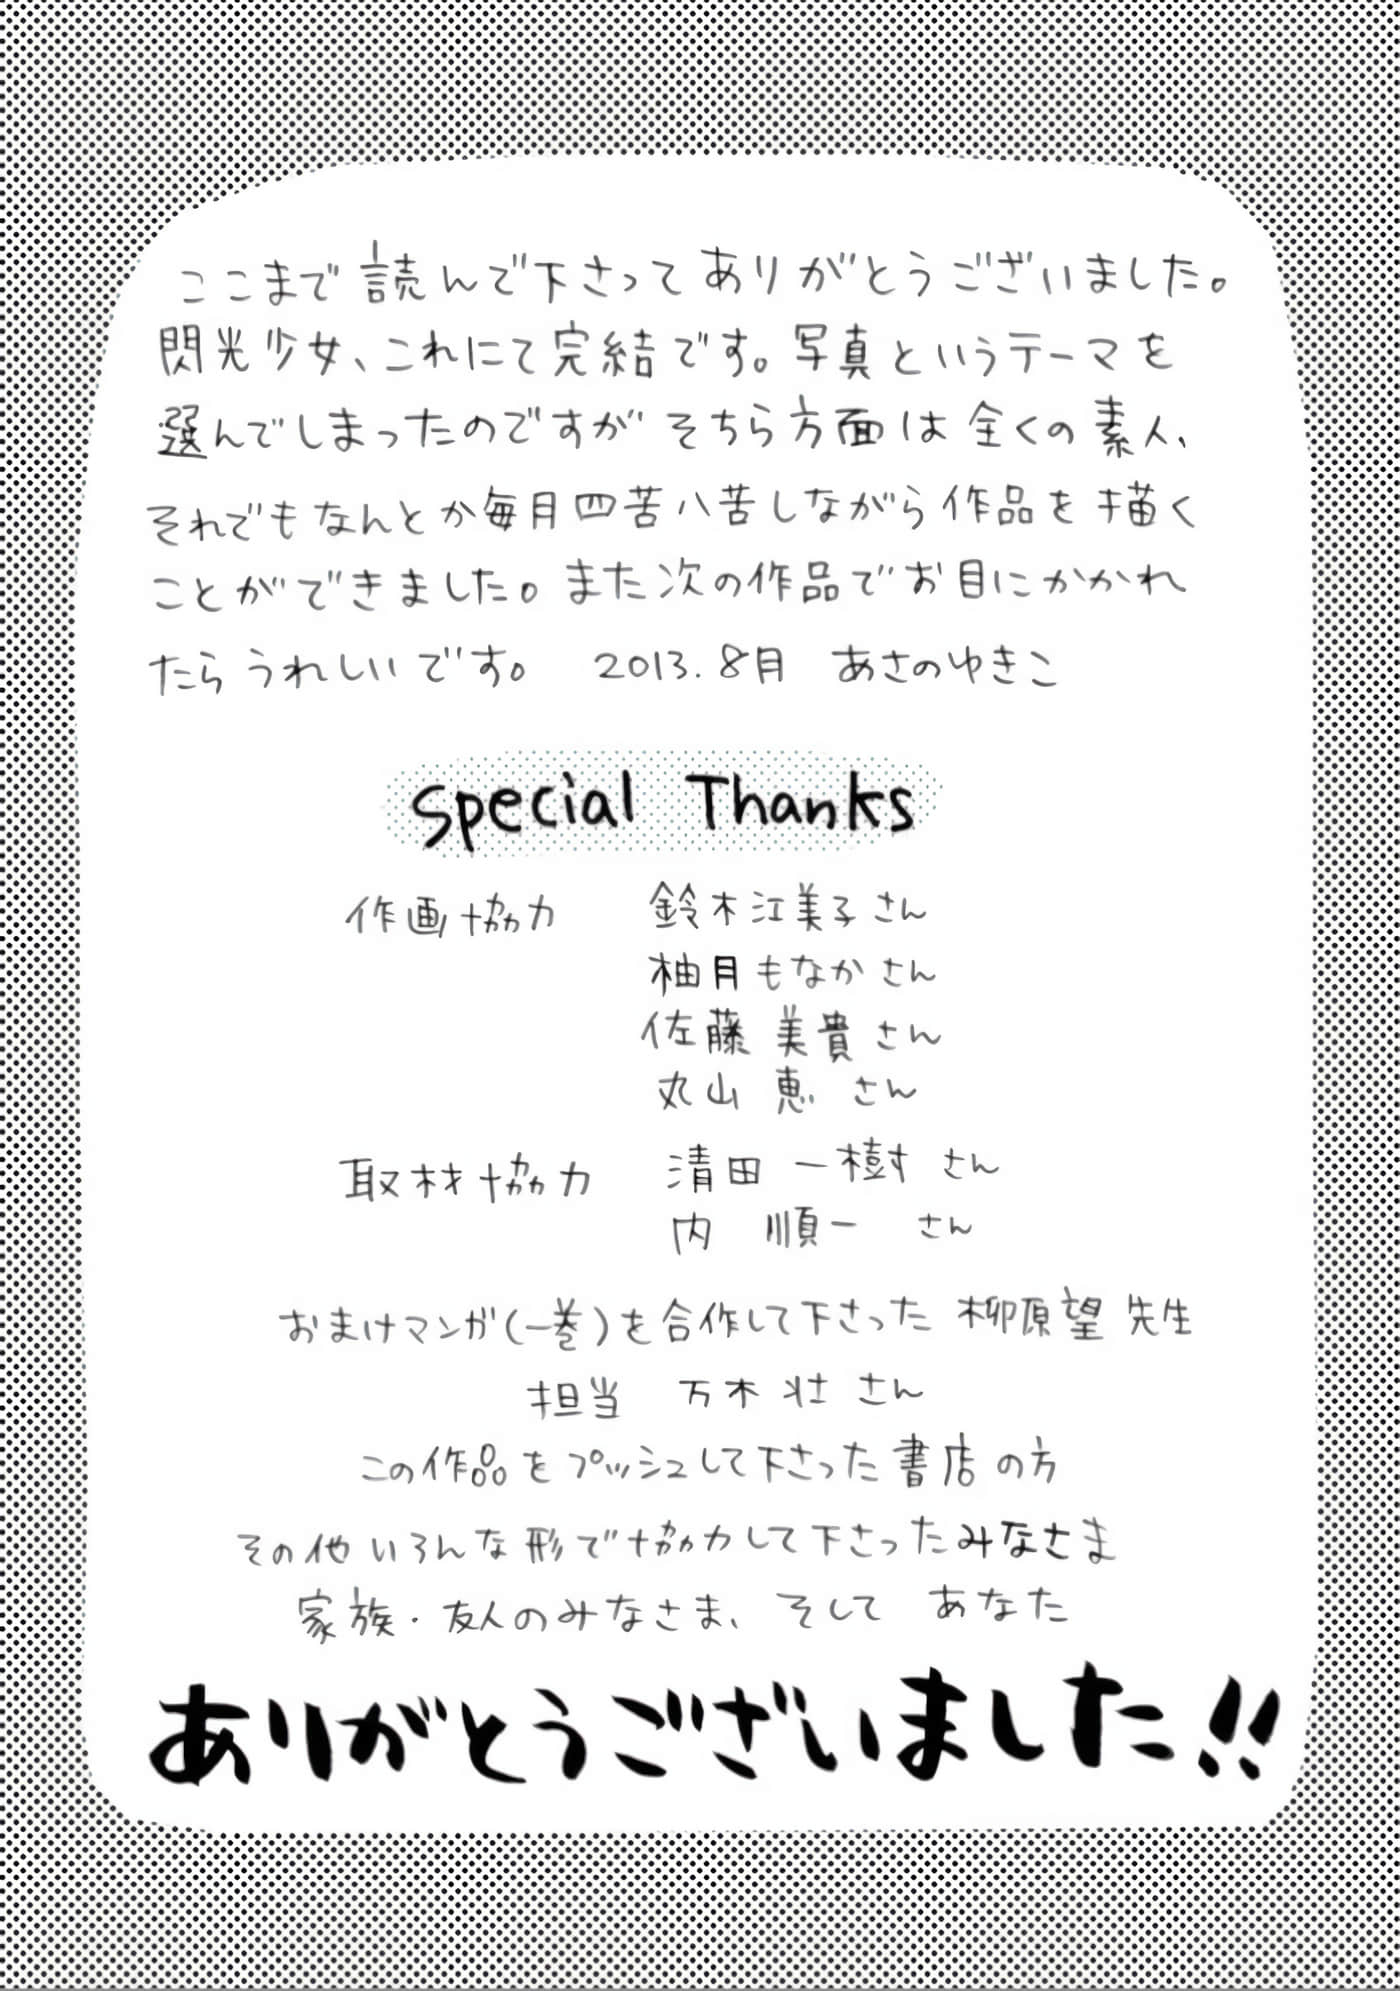 ここまで読んで下さってありがとうございました。
閃光少女、これにて完結です。写真というテーマを
選んでしまったのですがそちら方面は全くの素人、
それでもなんとか毎月四苦八苦しながら作品を描く
ことができました。また次の作品でお目にかかれ
たらうれしいです。 2013.8月 あさのゆきこ
Special Thanks
作画協力 鈴木江美子さん
柚月もなかさん
佐藤 美貴さん
丸山 恵 さん
取材協力 清田 一樹 さん
内 順一 さん
おまけマンガ(一巻)を合作して下さった 柳原望 先生
担当 万木 壮 さん
この作品をプッシュして下さった書店の方
その他いろんな形で協力して下さったみなさま
家族・友人のみなさま、そして あなた
ありがとうございました!!